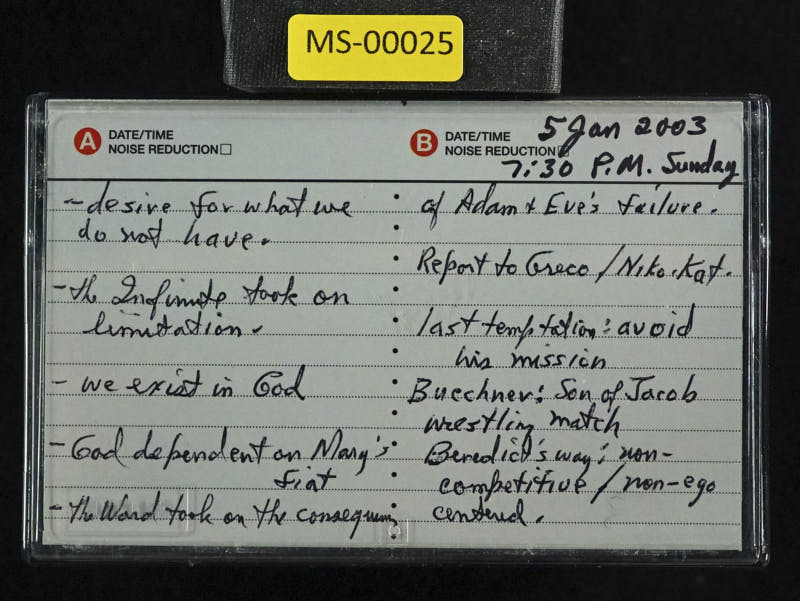 MS-00025
A DATE/TIME
NOISE REDUCTION
B DATE/TIME
NOISE REDUCTION
5 Jan 2003
7:30 P.M. Sunday
- desire for what we
do not have.
- the Infinite took on
limitation.
- we exist in God
- God dependent on Mary's
fiat
- the Word took on the consequen
of Adam & Eve's failure.
Report to Greco / Niko. Kat.
last temptation: avoid
his mission
Buechner: Son of Jacob
wrestling match
Benedict's way: non-
competitive / non-ego
centered.